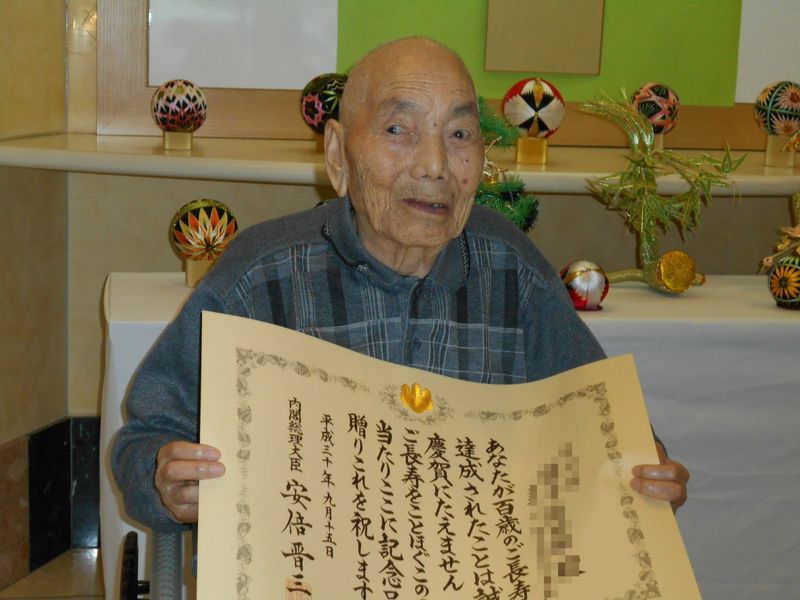 あなたが百歳のご長寿
達成されたことは誠
慶賀にたえません
ご長寿をことほぐこの
当たりここに記念
贈りこれを祝します
平成三十年九月十五日
内閣総理大臣 安倍晋三